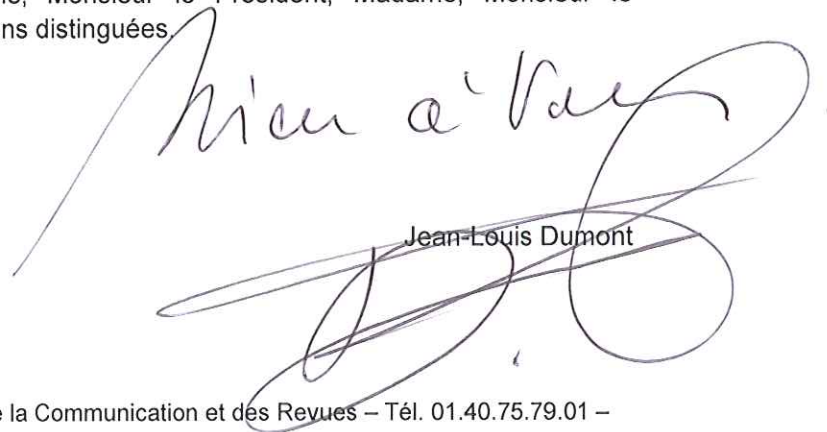 ne, Monsieur le Président, Madame, Monsieur le
ns distinguées.
Bien à Vous
Jean-Louis Dumont
e la Communication et des Revues – Tél. 01.40.75.79.01 –